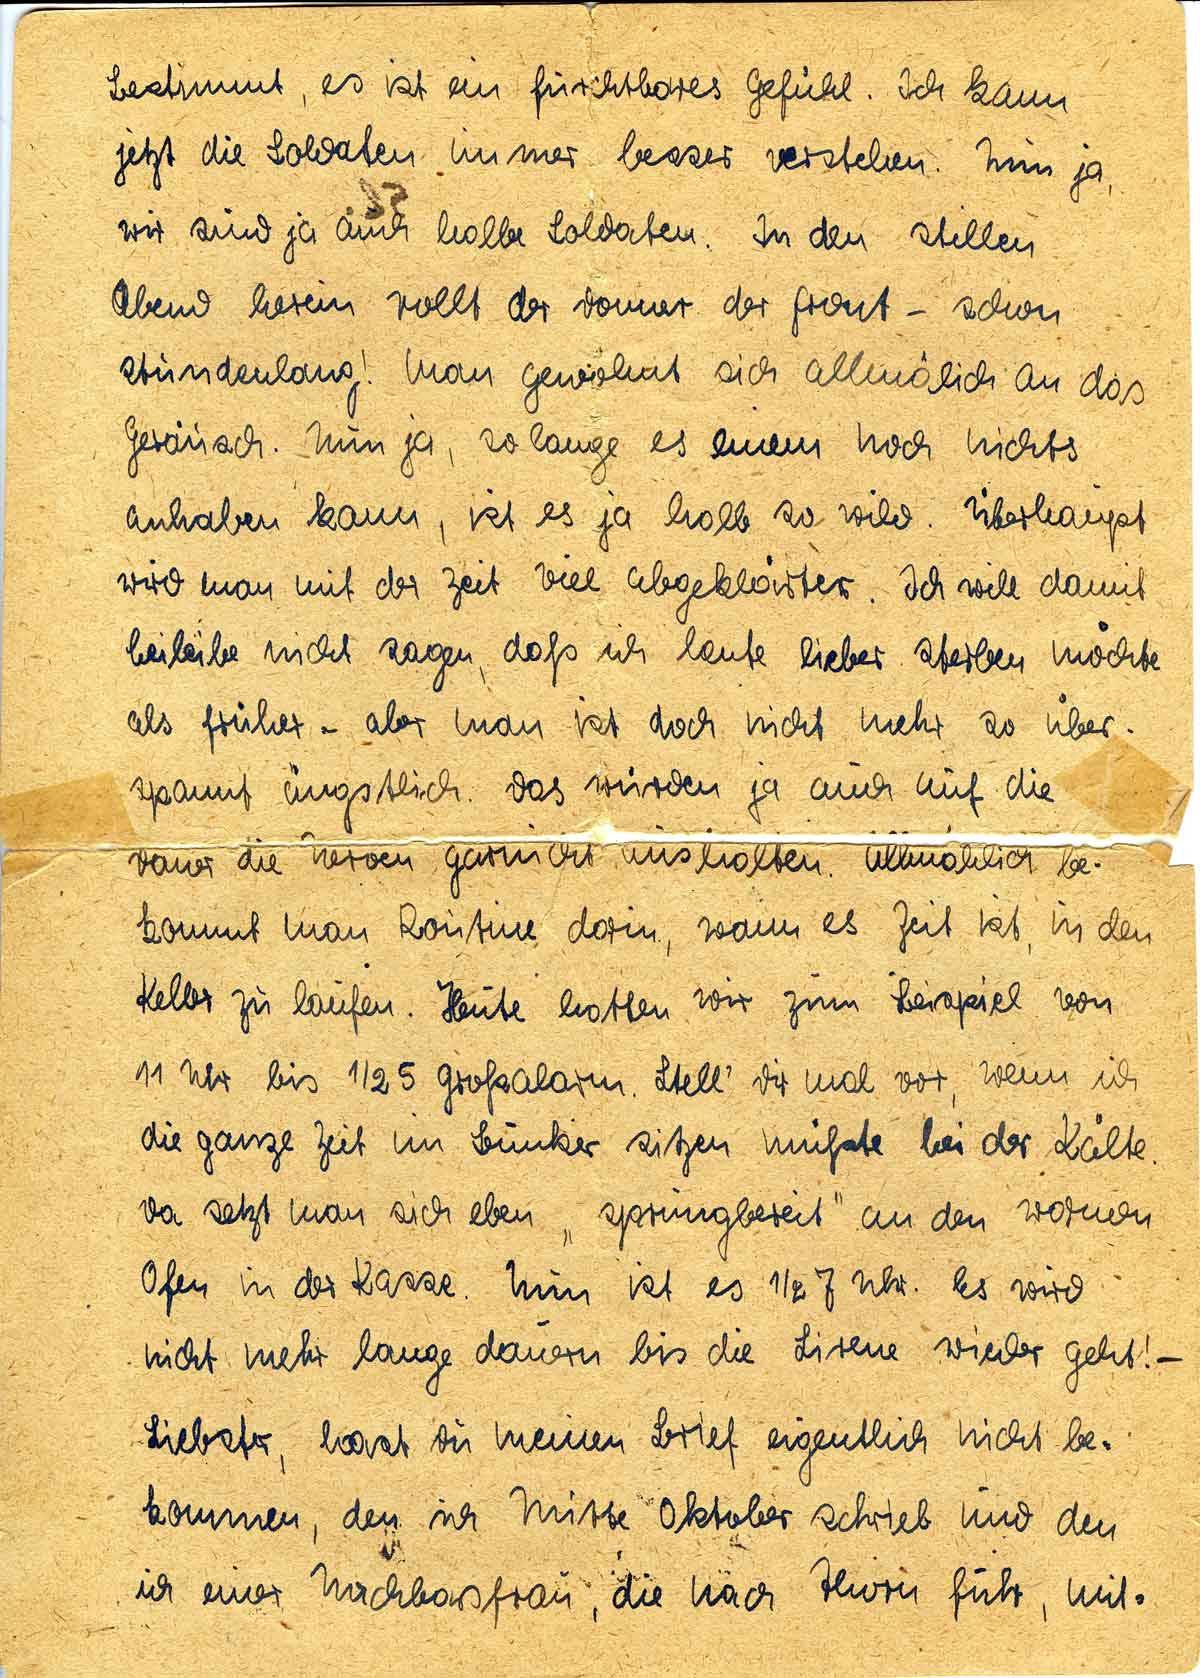 Bestimmt, es ist ein furchtbares Gefühl. Ich kann
jetzt die Soldaten immer besser verstehen. Nun ja,
wir sind ja auch halbe Soldaten. In den stillen
Abend herein rollt der Donner der Front – schon
stundenlang! Man gewöhnt sich allmälich an das
Geräusch. Nun ja, solange es einem noch nichts
anhaben kann, ist es ja halb so wild. Überhaupt
wird man mit der Zeit viel abgeklärter. Ich will damit
beileibe nicht sagen, daß ich heute lieber sterben möchte
als früher – aber man ist doch nicht mehr so über-
spannt ängstlich. Das würden ja auch auf die
Dauer die Nerven garnicht aushalten. Allmählich be-
kommt man Routine darin, wann es Zeit ist, in den
Keller zu laufen. Heute hatten wir zum Beispiel von
11 Uhr bis 1/2 5 Großalarm. Stell' dir mal vor, wenn ich
die ganze Zeit im Bunker sitzen müßte bei der Kälte.
Da setzt man sich eben „sprungbereit" an den warmen
Ofen in der Kasse. Nun ist es 1/2 7 Uhr. Es wird
nicht mehr lange dauern bis die Sirene wieder geht! –
Liebster, hast du meinen Brief eigentlich nicht be-
kommen, den ich Mitte Oktober schrieb und den
ich einer Nachbarsfrau, die nach Thorn fuhr, mit-